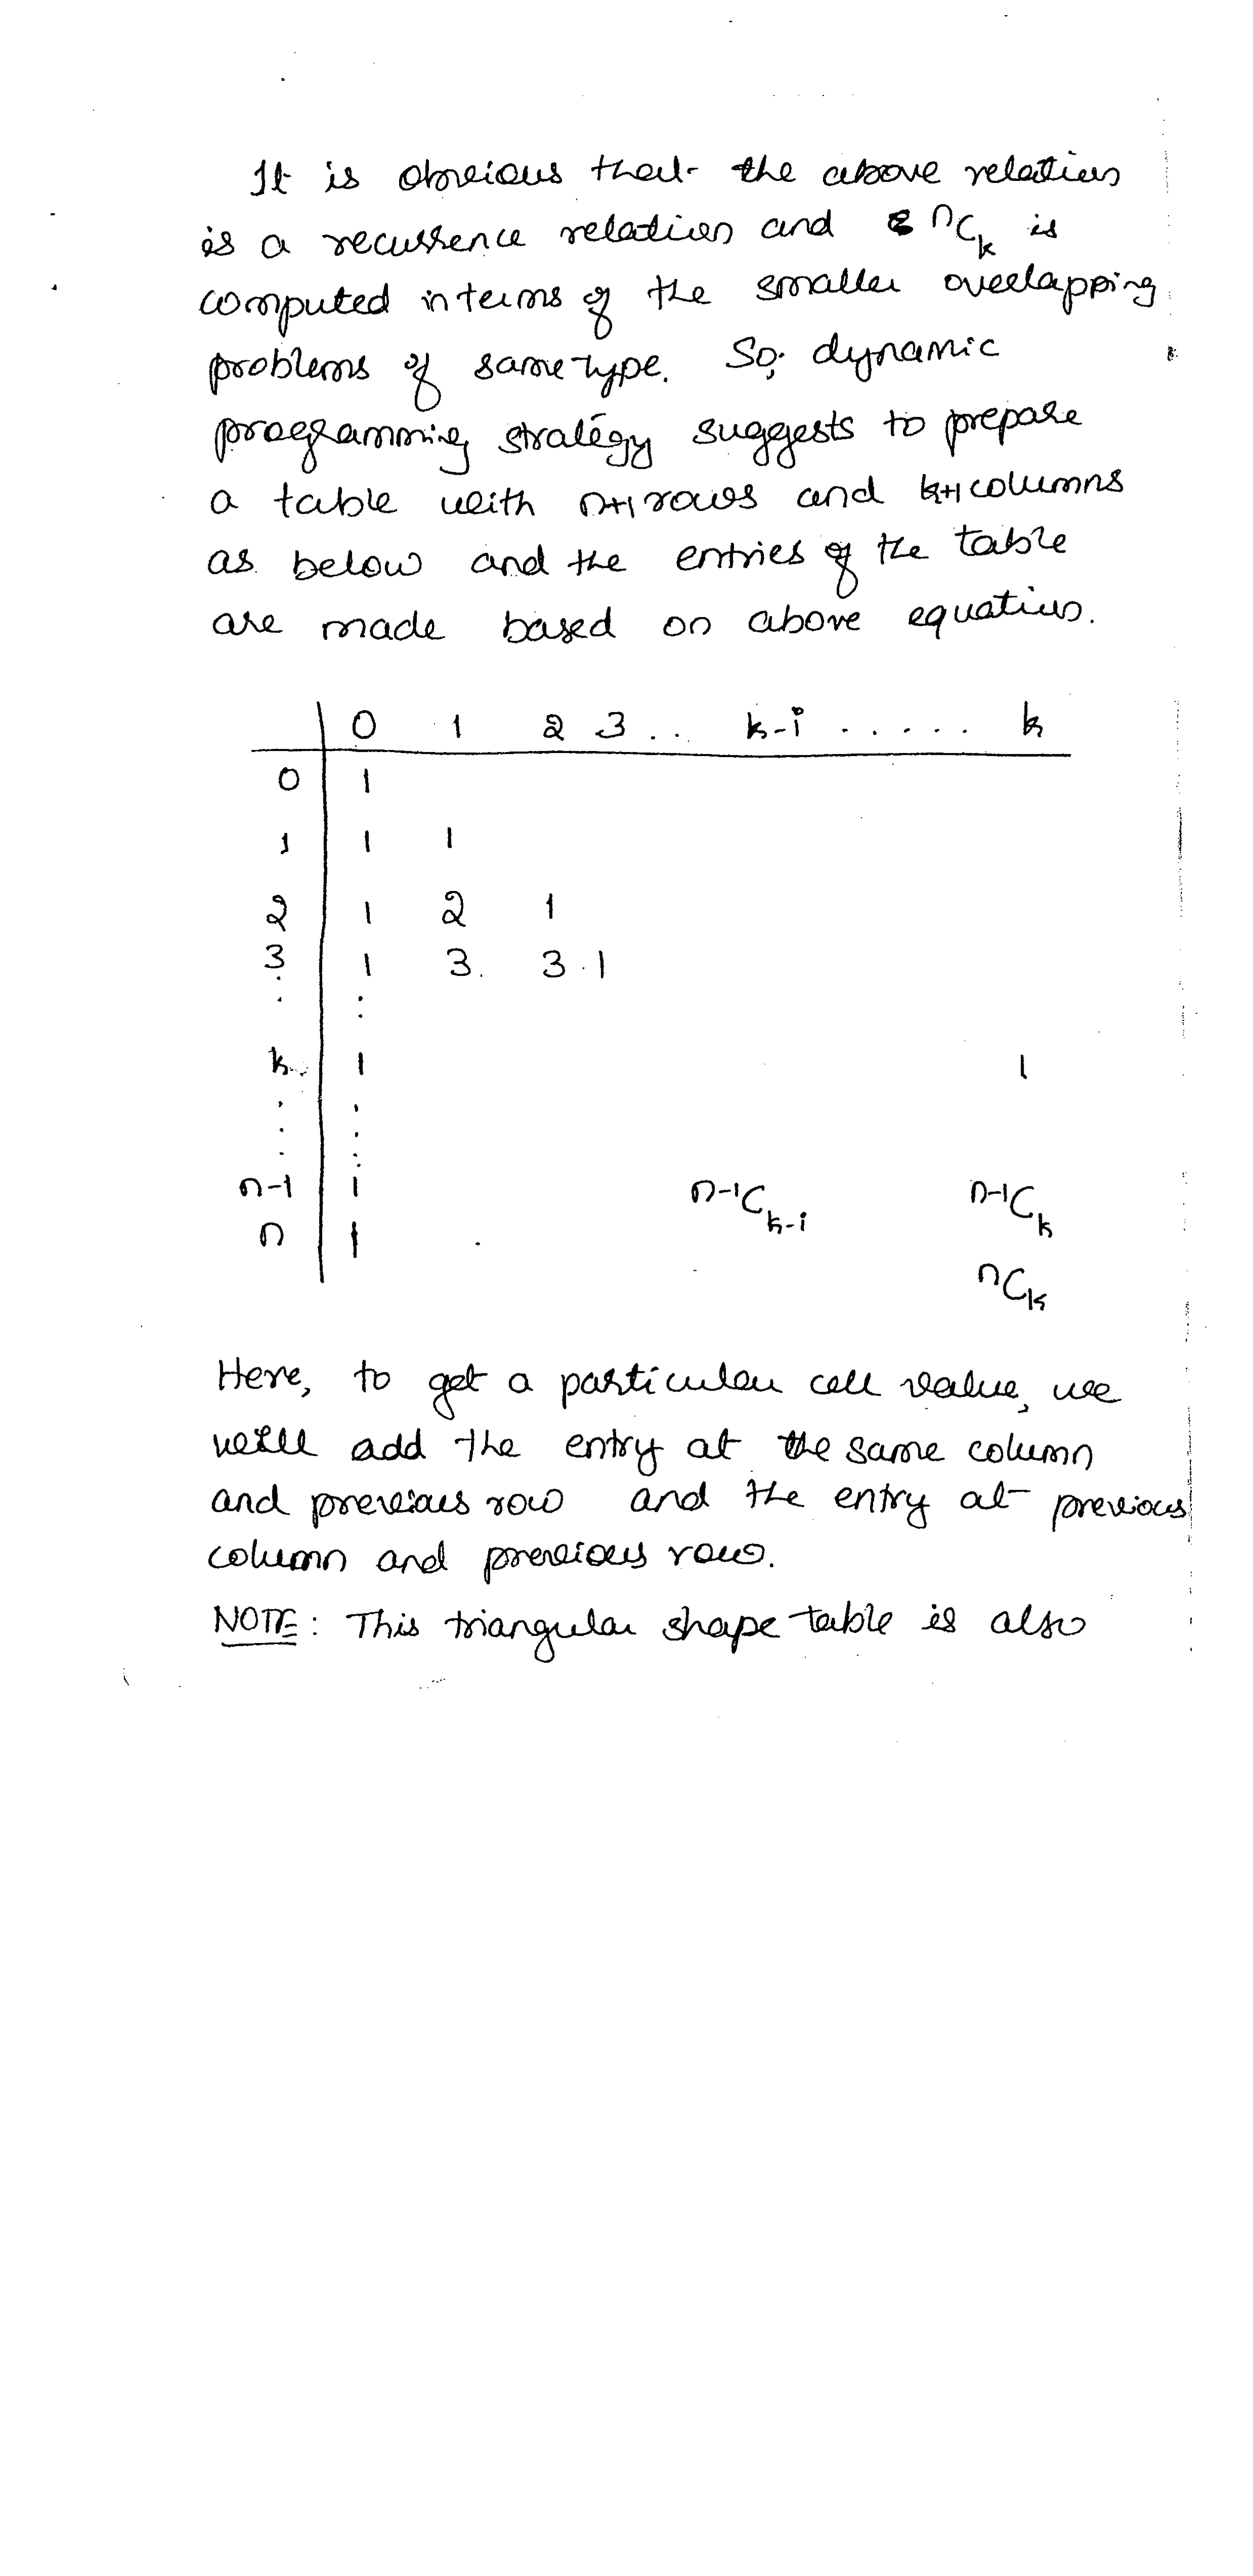 It is obvious that the above relation
is a recurrence relation and ⁿCₖ is
computed in terms of the smaller overlapping
problems of same type. So, dynamic
programming strategy suggests to prepare
a table with n+1 rows and k+1 columns
as below and the entries of the table
are made based on above equation.
0 1 2 3 .. k-1 ...... k
0 1
1 1 1
2 1 2 1
3 1 3 3 1
k 1 1
n-1 1 ⁿ⁻¹Cₖ₋₁ ⁿ⁻¹Cₖ
n 1
ⁿCₖ
Here, to get a particular cell value, we
will add the entry at the same column
and previous row and the entry at previous
column and previous row.
NOTE: This triangular shape table is also